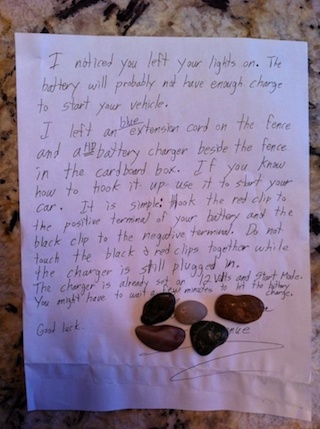 I noticed you left your lights on. The
battery will probably not have enough charge
to start your vehicle.
I left an blue extension cord on the fence
and a battery charger beside the fence
in the cardboard box. If you know
how to hook it up use it to start your
car. It is simple: Hook the red clip to
the positive terminal of your battery and the
black clip to the negative terminal. Do not
touch the black & red clips together while
the charger is still plugged in.
The charger is already set on 12 Volts and Start Mode.
You might have to wait a few minutes to let the battery
charge.
Good luck...